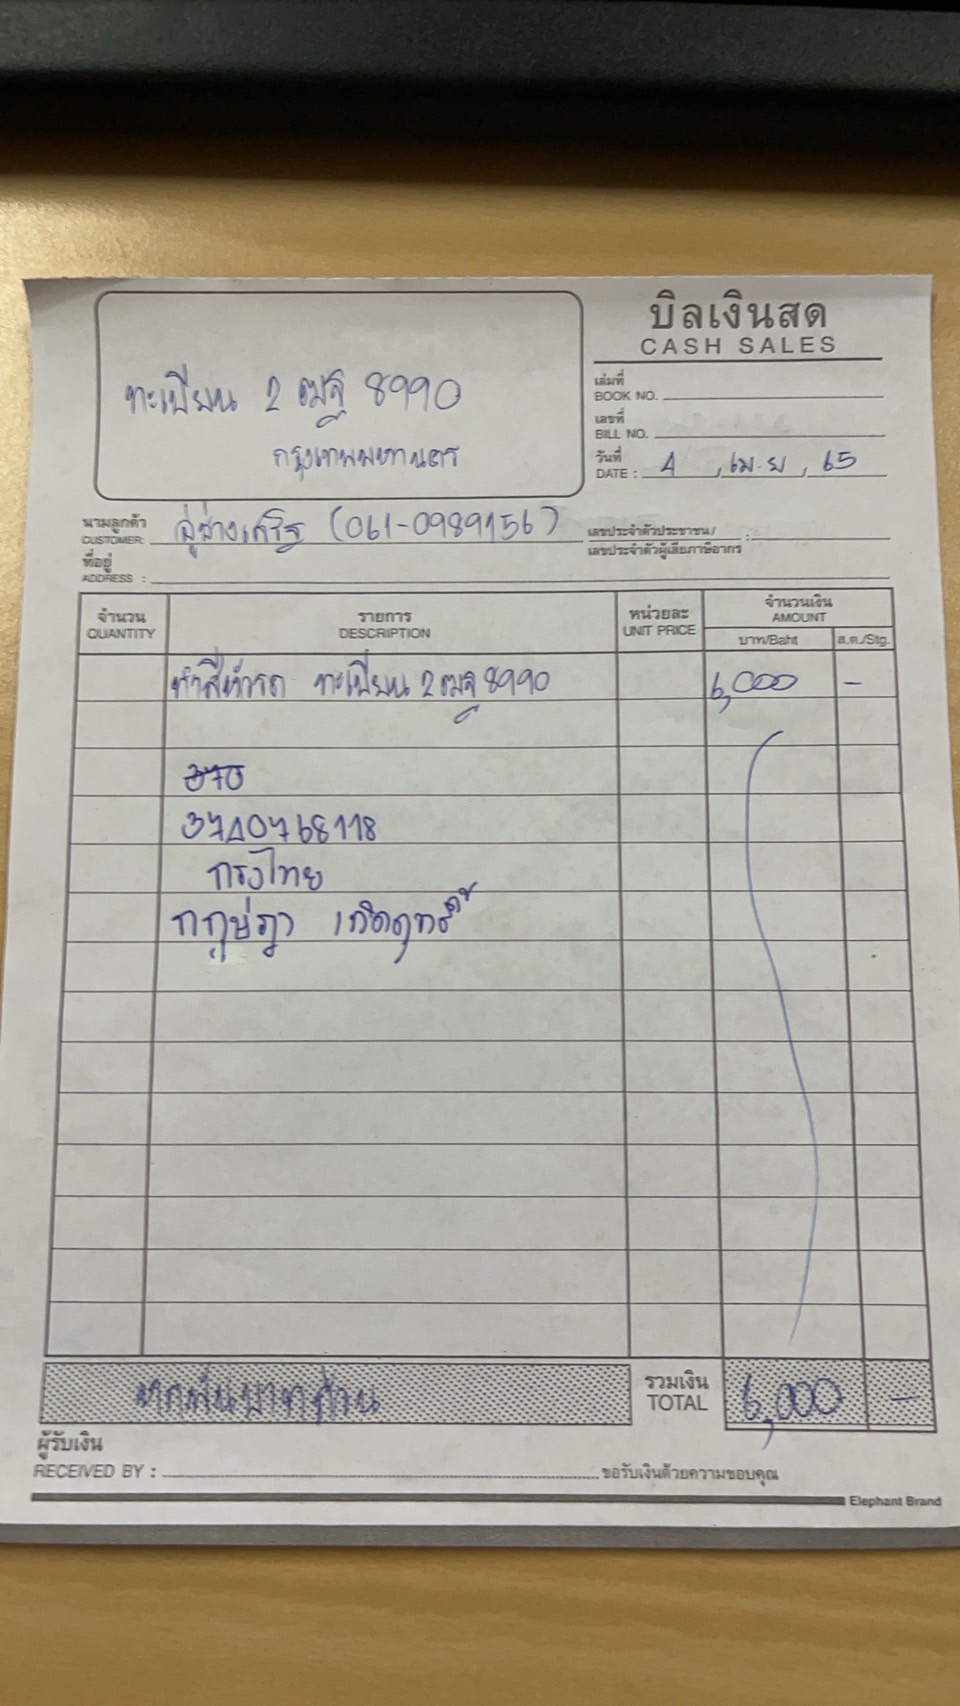 บิลเงินสด
CASH SALES
ทะเบียน 2 ฒฐ 8990
กรุงเทพมหานคร
เล่มที่
BOOK NO.
เลขที่
BILL NO.
วันที่
DATE : 4 , เม.ย , 65
นามลูกค้า
CUSTOMER: อู่ช่างเสริฐ (061-0989156)
เลขประจำตัวประชาชน/
เลขประจำตัวผู้เสียภาษีอากร :
ที่อยู่
ADDRESS :
จำนวน รายการ หน่วยละ จำนวนเงิน
QUANTITY DESCRIPTION UNIT PRICE AMOUNT
บาท/Baht ส.ต./Stg.
ทำสีหัวรถ ทะเบียน 2 ฒฐ 8990 6,000 -
370
3740768118
กรุงไทย
กฤษฎา
รวมเงิน
TOTAL 6,000 -
หกพันบาทถ้วน
ผู้รับเงิน
RECEIVED BY : ขอรับเงินด้วยความขอบคุณ
Elephant Brand